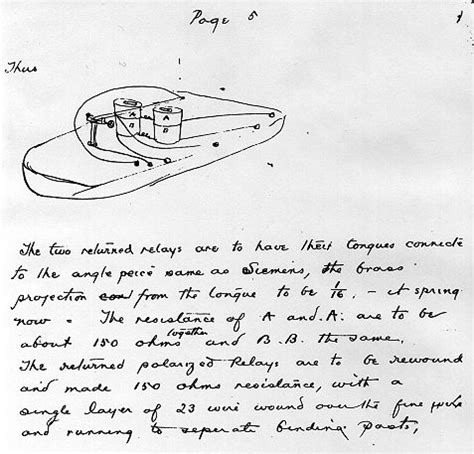 Page 5
Thus
A A
B B
The two returned relays are to have their tongues connecte
to the angle peice same as Siemens, the brass
projection from the tongue to be 1/16. - it springs
now. The resistance of A and A. are to be
about 150 ohms together and B.B. the same.
The returned polarized Relays are to be rewound
and made 150 ohms resistance, with a
single layer of 23 wire wound over the fine
and running to seperate binding posts,